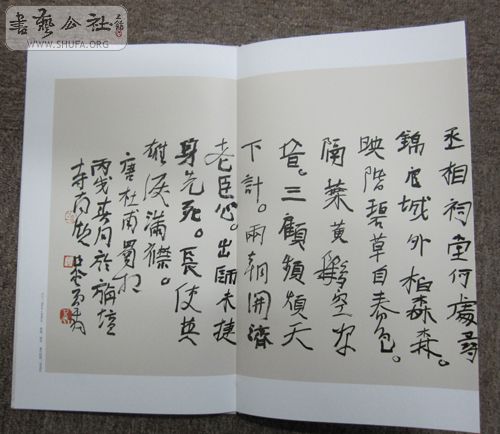 書藝公社
WWW.SHUFA.ORG
丞相祠堂何處尋
錦官城外柏森森。
映階碧草自春色。
隔葉黄鸝空好
音。三顧頻煩天
下計。兩朝開濟
老臣心。出師未捷
身先死。長使英
雄淚滿襟。
唐杜甫蜀相
丙戌春月於